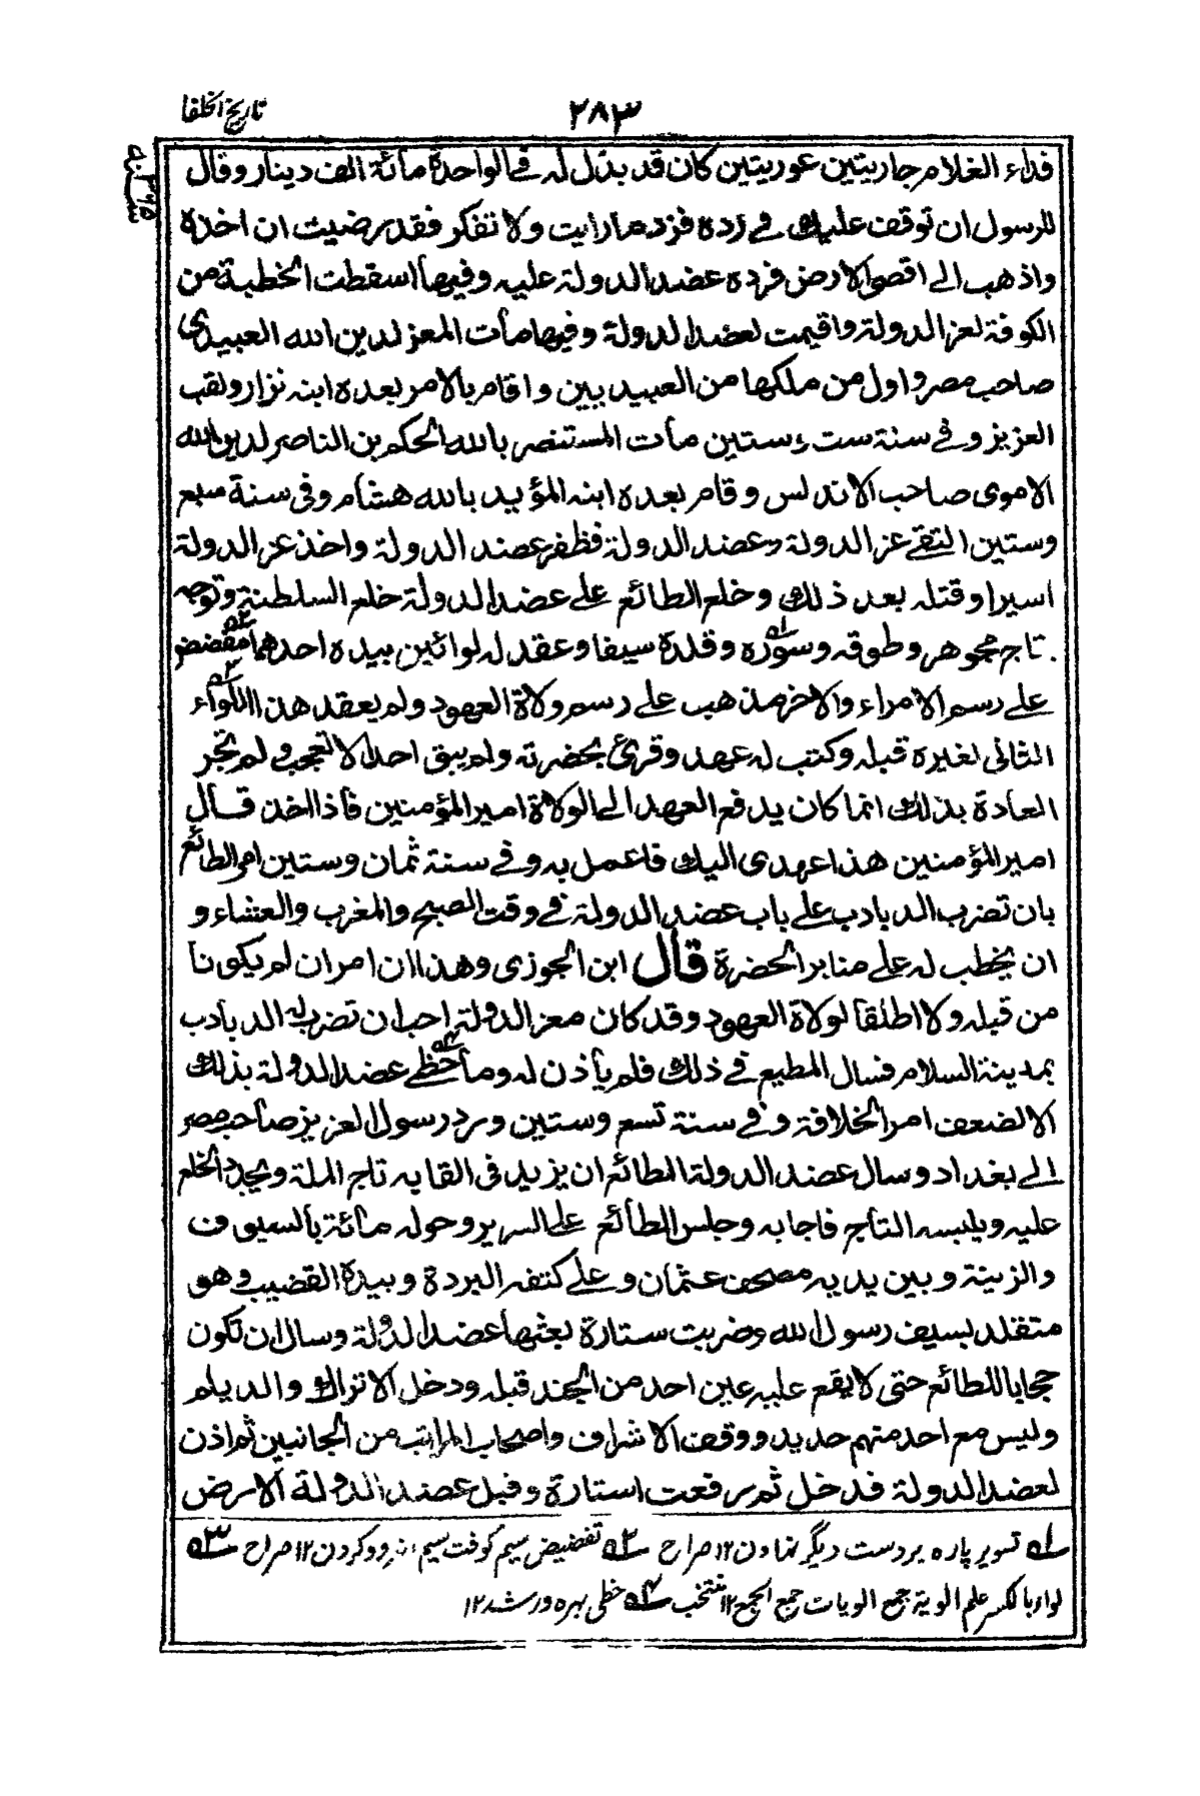 تاريخ الخلفا
٢٨٣
فداء الغلام جاريتين عوريتين كان قد بذل له في الواحدة مائة الف دينار وقال
للرسول ان توقف عليك في رده فزد ما رايت ولا تفكر فقد رضيت ان اخذه
واذهب الى اقصى الارض فرده عضد الدولة عليه وفيها اسقطت الخطبة من
الكوفة لعز الدولة واقيمت لعضد الدولة وفيها مات المعز لدين الله العبيدي
صاحب مصر واول من ملكها من العبيديين واقام بالامر بعده ابنه نزار ولقب
العزيز وفي سنة ست وستين مات المستنصر بالله الحكم بن الناصر لدين الله
الاموى صاحب الاندلس وقام بعده ابنه المؤيد بالله هشام وفى سنة سبع
وستين التقى عز الدولة وعضد الدولة فظفر عضد الدولة واخذ عز الدولة
اسيرا وقتله بعد ذلك وخلع الطائع على عضد الدولة خلع السلطنة وتوجه
بتاج مجوهر وطوقه وسوره وقلده سيفا وعقد له لوائين بيده احدهما مفضض
على رسم الامراء والاخر مذهب على رسم ولاة العهود ولم يعقد هذا اللواء
الثانى لغيره قبله وكتب له عهد وقرئ بحضرته ولم يبق احد الا تعجب ولم تجر
العادة بذلك انما كان يدفع العهد الى الولاة امير المؤمنين فاذا اخذ قال
امير المؤمنين هذا عهدى اليك فاعمل به وفي سنة ثمان وستين امر الطائع
بان تضرب الدبادب على باب عضد الدولة في وقت الصبح والمغرب والعشاء و
ان يخطب له على منابر الحضرة قال ابن الجوزى وهذا ان امران لم يكونا
من قبله ولا اطلقا لولاة العهود وقد كان معز الدولة احب ان تضرب له الدبادب
بمدينة السلام فسال المطيع في ذلك فلم يأذن له وما حظي عضد الدولة بذلك
الا لضعف امر الخلافة وفي سنة تسع وستين ورد رسول العزيز صاحب مصر
الى بغداد وسال عضد الدولة الطائع ان يزيد فى القابه تاج الملة ويجدد الخلع
عليه ويلبسه التاج فاجابه وجلس الطائع على السرير وحوله مائة بالسيوف
والزينة وبين يديه مصحف عثمان وعلى كتفه البردة وبيده القضيب وهو
متقلد بسيف رسول الله وضربت ستارة بعثها عضد الدولة وسال ان تكون
حجابا للطائع حتى لا يقع عليه عين احد من الجند قبله ودخل الاتراك والديلم
وليس مع احد منهم حديد ووقف الاشراف واصحاب المراتب من الجانبين ثم اذن
لعضد الدولة فدخل ثم رفعت استارة وقبل عضد الدولة الارض
١ه تسوير پاره بر دست ديگر نهادن ١٢ صراح ٢ه تفضيض بسيم كوفت بسيم اندر و كردن ١٢ صراح ٣ه
لواء بالكسر علم الوية جمع الويات جمع الجمع ١٢ منتخب ٤ه حظى بهره ور شد ١٢